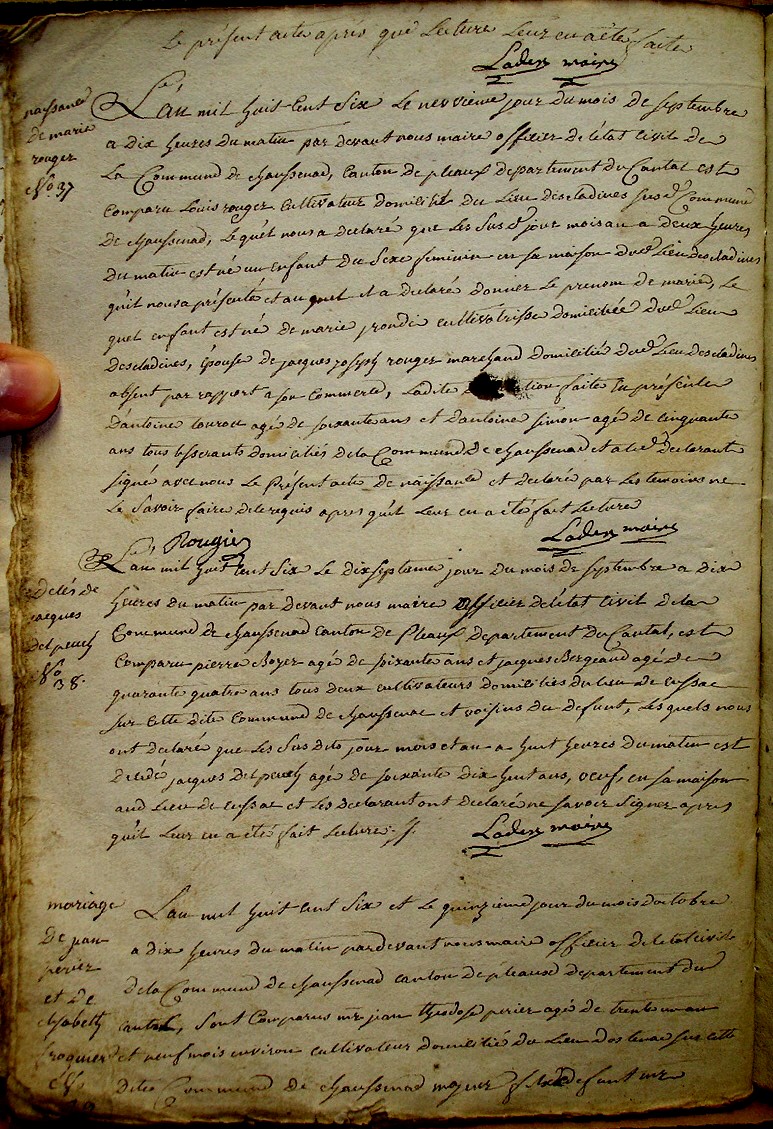 Le présent acte après que Lecture Leur en a été faite
Laden maire
naissance
de marie
rouger
No. 37
L'an mil huit Cent Six Le neuvieme jour du mois de septembre
a dix heures du matin par devant nous maire officier de l'état Civil de
La Commune de chaussenac, Canton de pleaux departement du Cantal est
Comparu Louis rouger Cultivateur domicilié du Lieu descladines susd. Commune
de chaussenac, Lequel nous a declaré que Les Susd. jour mois an a deux heures
du matin est né un enfant du Sexe feminin en sa maison dud. Lieu descladines
qu'il nous a présenté et au quel il a declaré donner Le prenom de marie, Le
quel enfant est né de marie jrondi cultivatrisse domiciliée dud. Lieu
descladines, épouse de jacques joseph rouger marchand domicilié dud. Lieu descladines
absent par rapport a son Commerce, Ladite tion faite En présence
d'antoine touron agé de soixante ans et d'antoine simon agé de cinquante
ans tous domiciliés de la Commune de chaussenac et a led. declarant
signé avec nous Le Présent acte de naissance et declaré par Les temoins ne
Le Savoir faire de ce requis apres qu'il Leur en a été fait Lecture
Rougier Laden maire
decés de
jacques
delpeuch
No
38.
L'an mil huit Cent Six Le dix septieme jour du mois de septembre a dix
heures du matin par devant nous maire officier de l'état Civil de la
Commune de chaussenac canton de Pleaux departement du Cantal, est
Comparu pierre Boyer agé de soixante ans et jacques Bergeaud agé de
quarante quatre ans tous deux cultivateurs domiciliés du lieu de cussac
sur Cette dite Commune de chaussenac et voisins du defunt, Lesquels nous
ont declaré que Les Susdits jour mois et an a huit heures du matin est
decedé jacques delpeuch agé de soixante dix huit ans, veuf, en sa maison
aud Lieu de cussac et Les declarant ont declaré ne savoir signer apres
qu'il Leur en a été fait Lecture.
Laden maire
mariage
de jean
perier
et de
elizabeth
No
L'an mil huit Cent Six et Le quinzieme jour du mois d'octobre
a dix heures du matin par devant nous maire officier de l'etat Civil
de la Commune de chaussenac canton de pleaux departement du
Cantal, Sont Comparus mr jean theodose perier agé de trente un an
et neuf mois environ cultivateur domicilié du Lieu sur cette
dite Commune de chaussenac majeur fils defunt mr